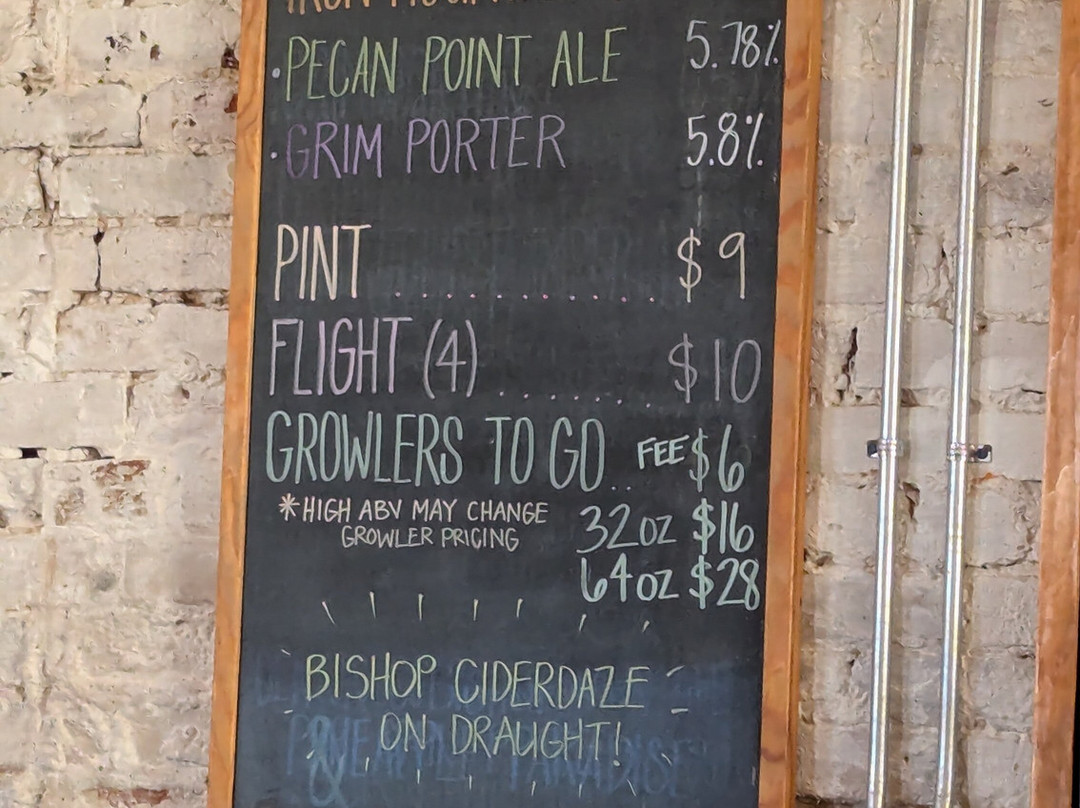 IRON
• PECAN POINT ALE 5.78%
• GRIM PORTER 5.8%
PINT ............ $9
FLIGHT (4) ........ $10
GROWLERS TO GO.. FEE $6
*HIGH ABV MAY CHANGE
GROWLER PRICING
32oz $16
64oz $28
BISHOP CIDERDAZE
ON DRAUGHT!